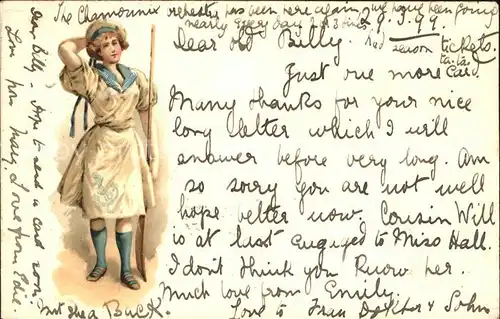 The Chamounix orchestra has been here again, we have been going
nearly every day 2 or 3 times
9.3.99.
Dear old Billy. Had season tickets.
ta-ta.
Just one more Card.
Many thanks for your nice
long letter which I will
answer before very long. Am
so sorry you are not well
hope better now. Cousin Will
is at last engaged to Miss Hall.
I don't think you Know her.
Much love from Emily.
Love to Frau Doktor & Sohn
Not she a Buck.
Dear Billy. Hope to send a card soon.
Love from Mary. Love from Edie.